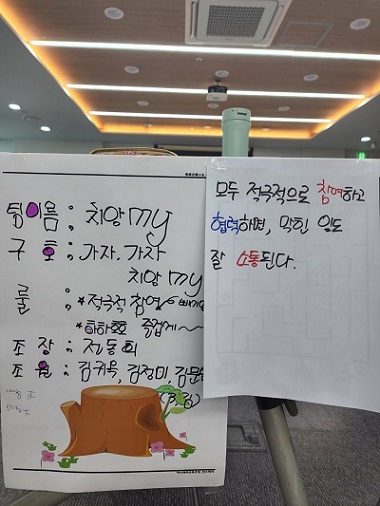 팀이름 ; 치앙my
구 호 ; 가자. 가자
치앙 my
룰 ; *적극적 참여
*하하호호 즐겁게~
조 장 ; 전동희
조 원 ; 김귀옥, 김정미, 김문
모두 적극적으로 참여하고
협력하면, 막힌 일도
잘 소통된다.